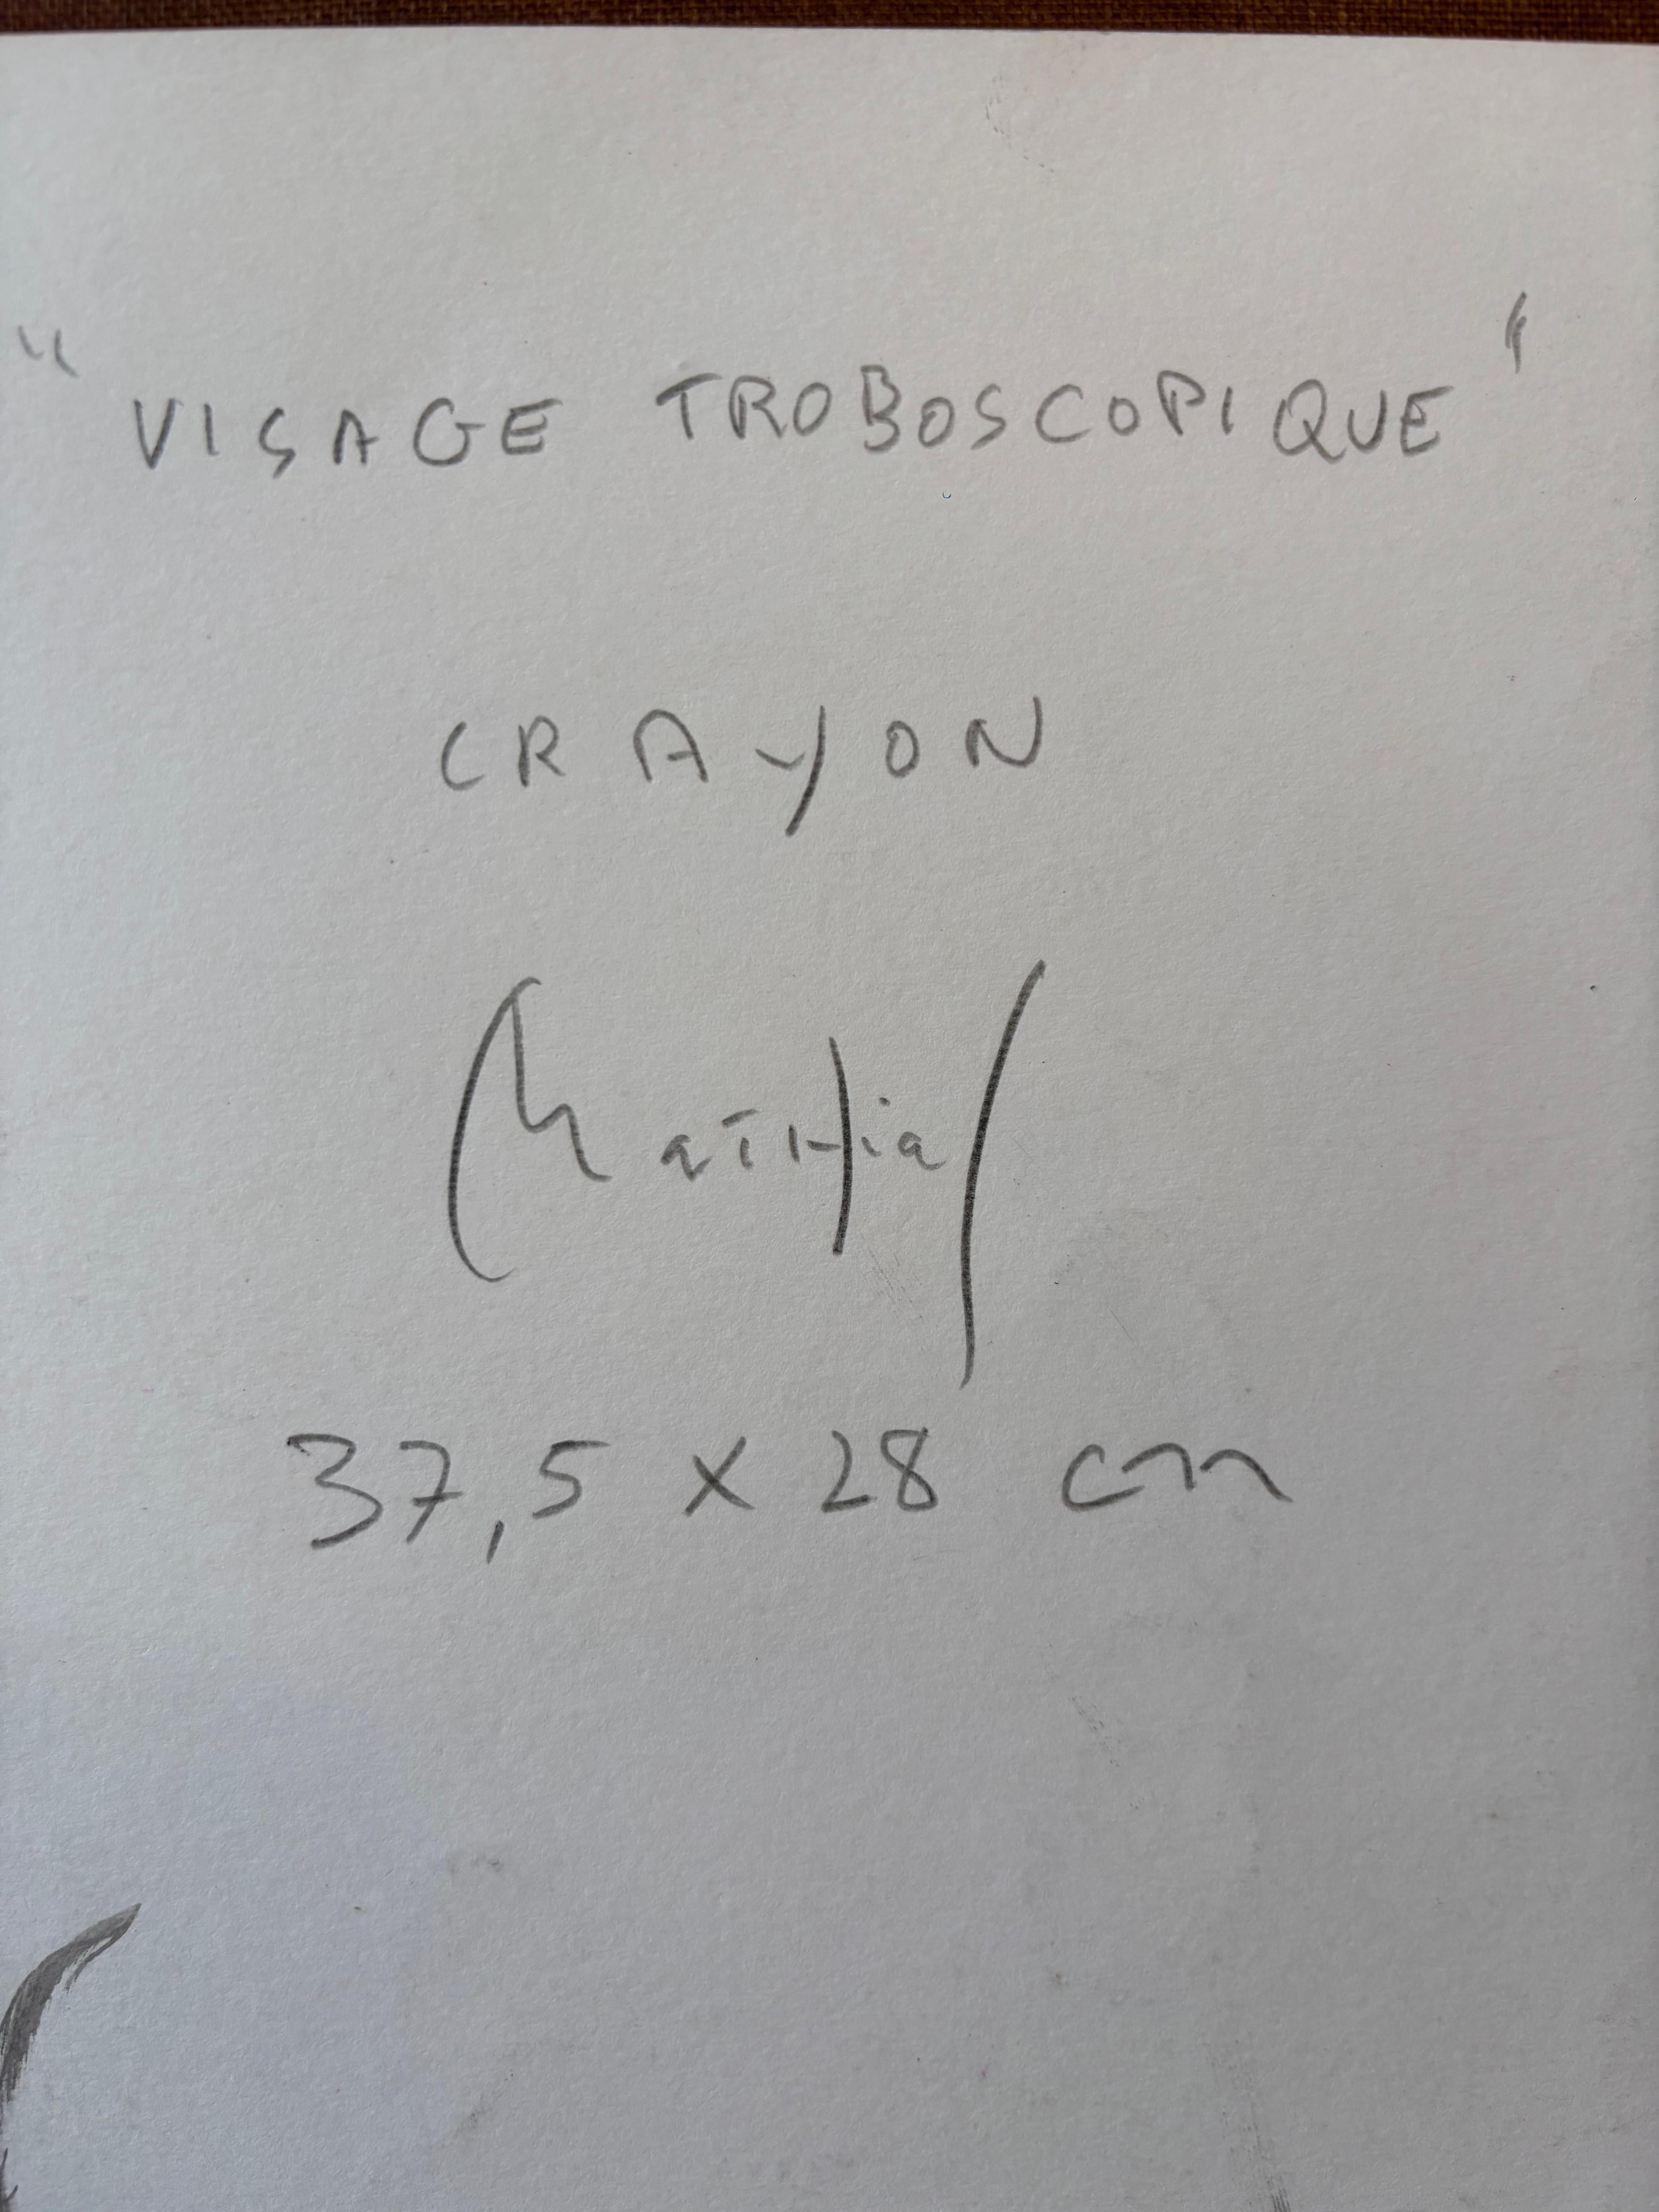 "VISAGE TROBOSCOPIQUE"
CRAYON
MatHias
37,5 x 28 cm